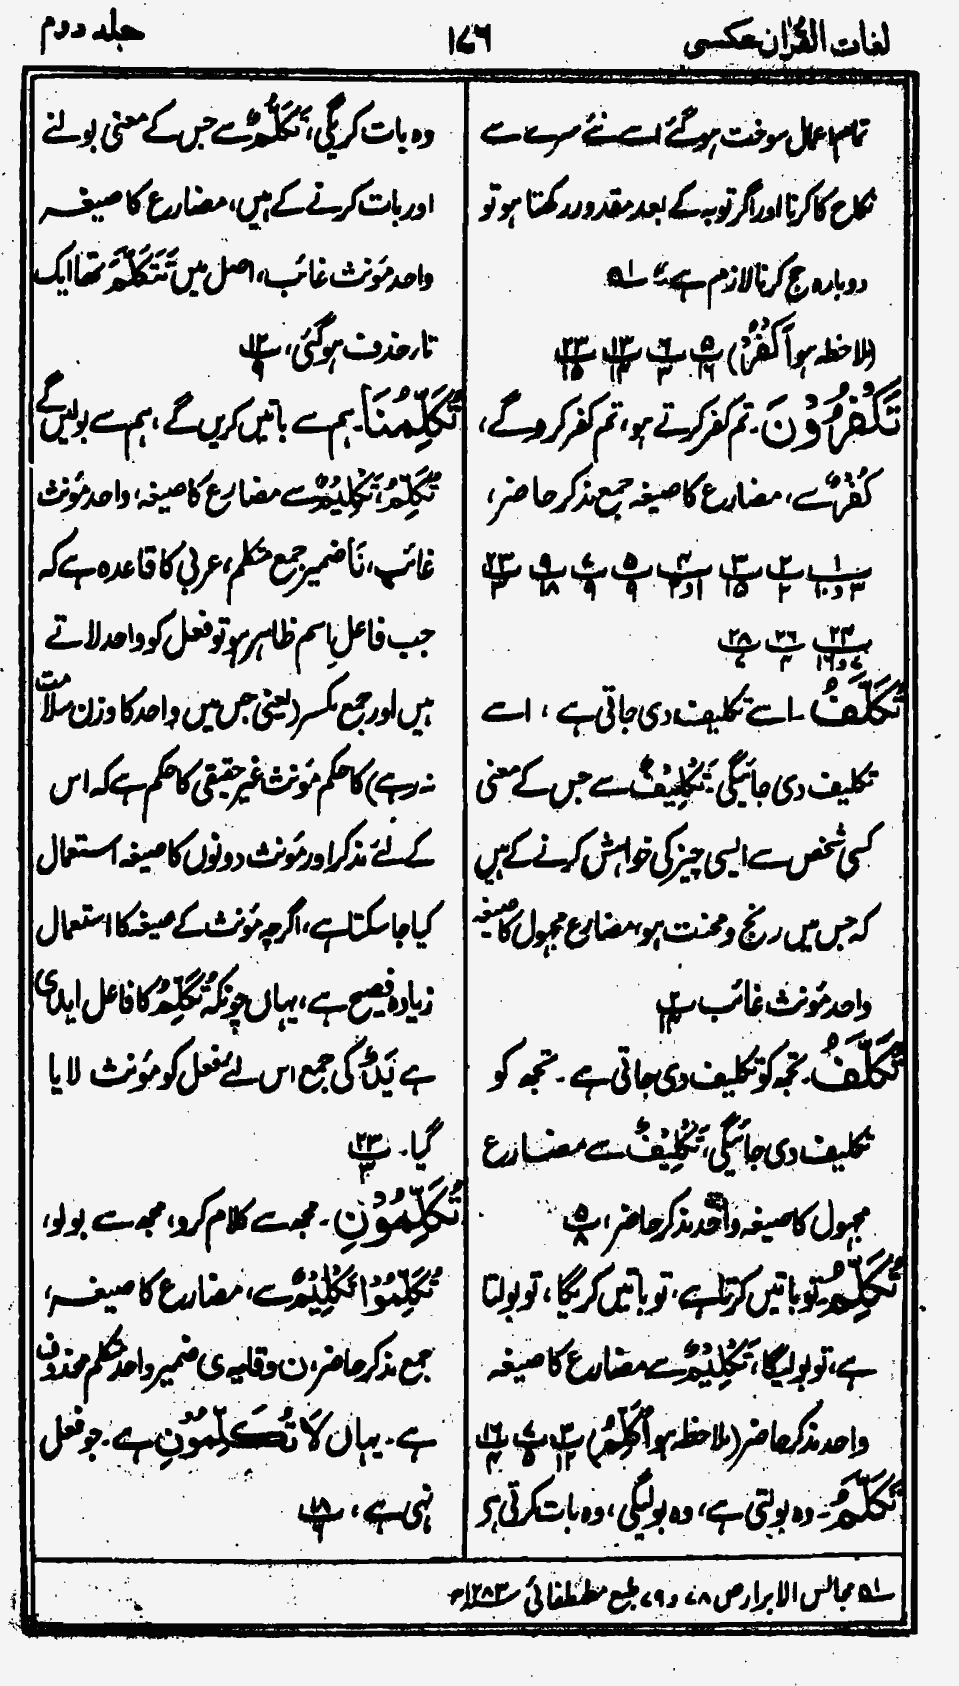 لغات القرآن عکسی
۱۷۶
جلد دوم
تمام اعمال سوخت ہو گئے اسے نئے سرے سے
نکاح کا کرنا اور اگر توبہ کے بعد مقدور رکھتا ہو تو
دوبارہ حج کرنا لازم ہے
(ملاحظہ ہو أَكْفُرُ) ۵/۱۶ ۶/۳ ۱۳/۱۳ ۲۳/۱۵
تَكْفُرُوْنَ۔ تم کفر کرتے ہو، تم کفر کرو گے،
كُفْرٌ سے، مضارع کا صیغہ جمع مذکر حاضر،
۱/۳و۱۰ ۲/۲ ۳/۱۵ ۴/۱و۳ ۵/۹ ۷/۹ ۹/۱۸ ۲۳/۳
۲۴/۷و۱۶ ۲۶/۲ ۲۸/۷
تُكَلَّفُ۔ اسے تکلیف دی جاتی ہے، اسے
تکلیف دی جائیگی، تَكْلِيْفٌ سے جس کے معنی
کسی شخص سے ایسی چیز کی خواہش کرنے کے ہیں
کہ جس میں رنج و محنت ہو، مضارع مجہول کا صیغہ
واحد مؤنث غائب ۲/۱۴
تُكَلَّفُ۔ تجھ کو تکلیف دی جاتی ہے۔ تجھ کو
تکلیف دی جائیگی، تَكْلِيْفٌ سے مضارع
مجہول کا صیغہ واحد مذکر حاضر، ۵/۸
تُكَلِّمُ۔ تو باتیں کرتا ہے، تو باتیں کریگا، تو بولتا
ہے، تو بولیگا، تَكْلِيْمٌ سے مضارع کا صیغہ
واحد مذکر حاضر (ملاحظہ ہو أُكَلِّمُ) ۳/۱۲ ۷/۵ ۱۶/۴
تَكَلَّمُ۔ وہ بولتی ہے، وہ بولیگی، وہ بات کرتی ہے
وہ بات کریگی، تَكَلُّمٌ سے جس کے معنی بولنے
اور بات کرنے کے ہیں، مضارع کا صیغہ
واحد مؤنث غائب، اصل میں تَتَكَلَّمُ تھا ایک
تار حذف ہو گئی، ۱۲/۹
تُكَلِّمُنَا۔ ہم سے باتیں کریں گے، ہم سے بولیں گے
تُكَلِّمُ، تَكْلِيْمٌ سے مضارع کا صیغہ، واحد مؤنث
غائب، نَا ضمیر جمع متکلم، عربی کا قاعدہ ہے کہ
جب فاعل اسم ظاہر ہو تو فعل کو واحد لاتے
ہیں اور جمع مکسر (یعنی جس میں واحد کا وزن سلامت
نہ رہے) کا حکم مؤنث غیر حقیقی کا حکم ہے کہ اس
کے لئے مذکر اور مؤنث دونوں کا صیغہ استعمال
کیا جا سکتا ہے، اگرچہ مؤنث کے صیغہ کا استعمال
زیادہ فصیح ہے، یہاں چونکہ تُكَلِّمُ کا فاعل ایدی
ہے يَدٌ کی جمع اس لئے فعل کو مؤنث لایا
گیا۔ ۲۳/۳
تُكَلِّمُوْنِ۔ مجھ سے کلام کرو، مجھ سے بولو،
تُكَلِّمُوْا تَكْلِيْمٌ سے، مضارع کا صیغہ،
جمع مذکر حاضر، ن وقایہ ی ضمیر واحد متکلم محذوف
ہے۔ یہاں لَا تُكَلِّمُوْنِ ہے۔ جو فعل
نہی ہے، ۱۸/۶
لہ مجالس الابرار ص ۷۸ و ۷۹ طبع مصطفائی ۱۲۸۳ھ